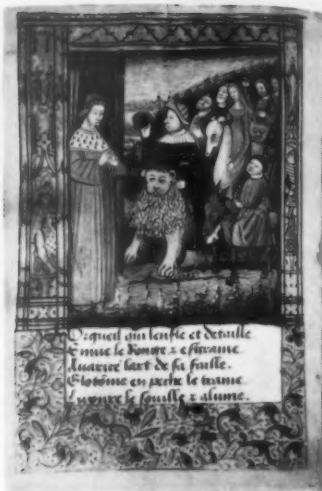 Orgueil qui lenfle et detaille
Enuie le Ronge z
Auarice lart de sa faille.
Glotōnie en peche le traine
Luxure le souille z alume.